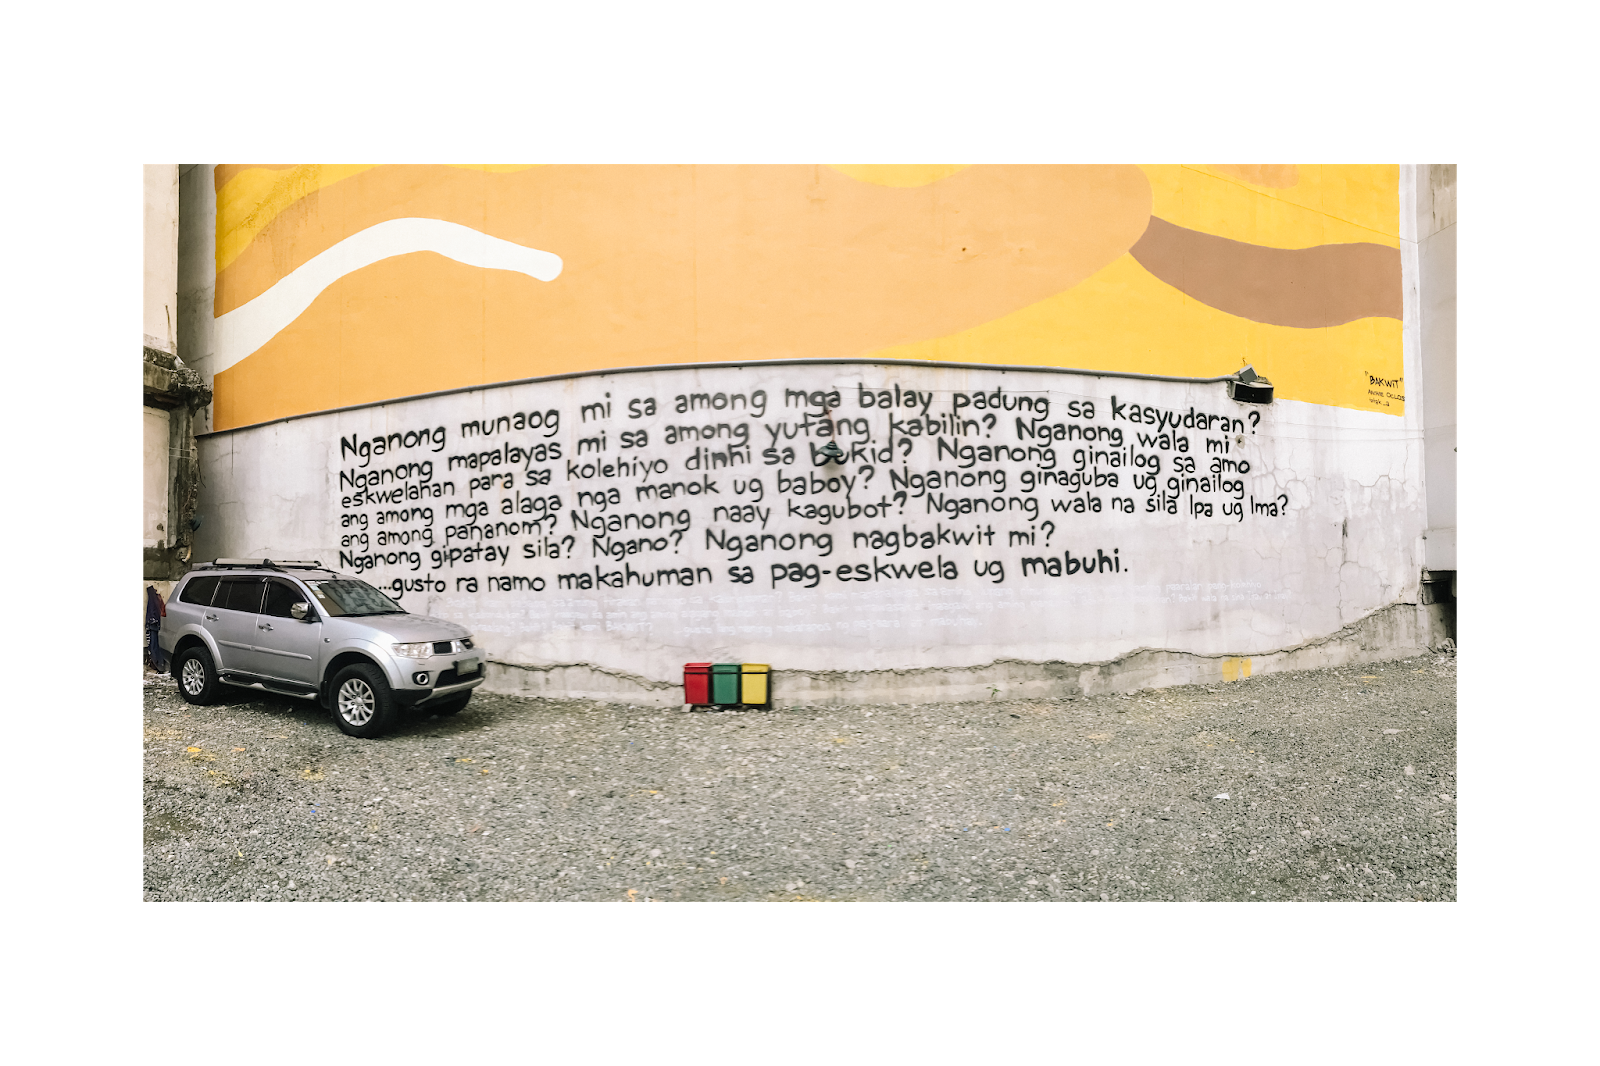 "BAKWIT"
Nganong munaog mi sa among mga balay padung sa kasyudaran?
Nganong mapalayas mi sa among yutang kabilin? Nganong wala mi
eskwelahan para sa kolehiyo dinhi sa bukid? Nganong ginailog sa amo
ang among mga alaga nga manok ug baboy? Nganong ginaguba ug ginailog
ang among pananom? Nganong naay kagubot? Nganong wala na sila Ipa ug Ima?
Nganong gipatay sila? Ngano? Nganong nagbakwit mi?
...gusto ra namo makahuman sa pag-eskwela ug mabuhi.